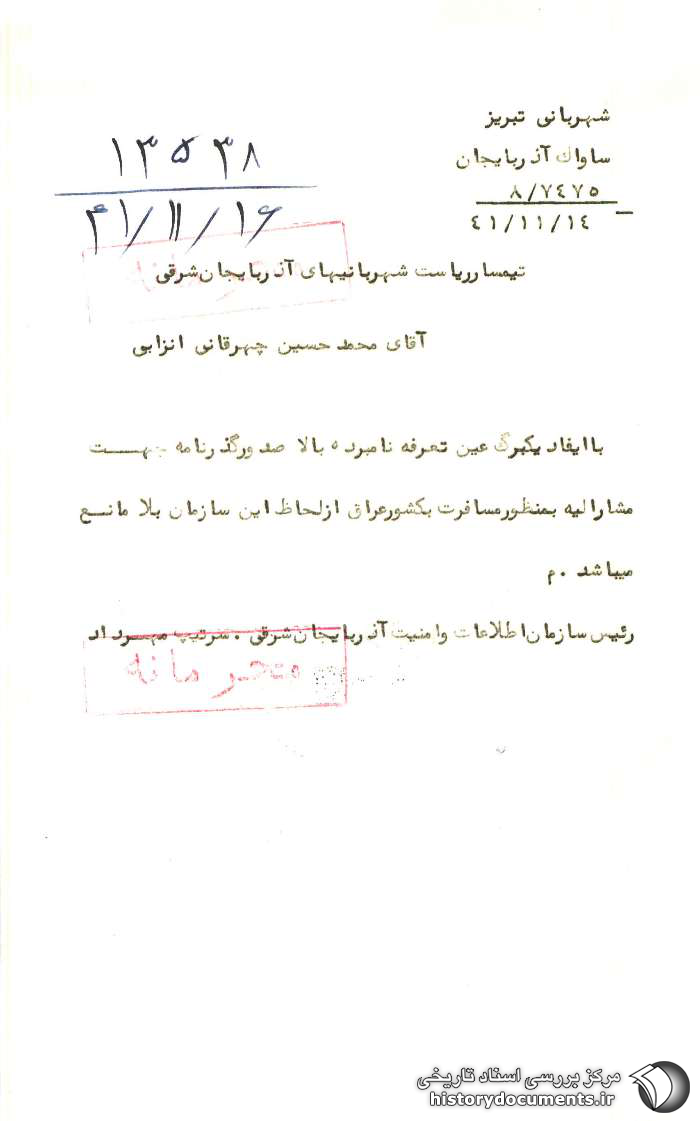 شهربانی تبریز
ساواك آذربایجان
۸/۷٤۷۵
٤۱/۱۱/۱٤
۱۳۵۳۸
۴۱/۱۱/۱۶
تیمسارریاست شهربانیهای آذربایجان‌شرقی
آقای محمد حسین چهرقانی انزابی
باایفاد یکبرگ عین تعرفه نامبرده بالا صدورگذرنامه جهت
مشارالیه بمنظورمسافرت بکشورعراق ازلحاظ این سازمان بلا مانع
میباشد .م
رئیس سازمان‌اطلاعات وامنیت آذربایجان‌شرقی . سرتیپ مهرداد
محرمانه
مرکز بررسی اسناد تاریخی
historydocuments.ir